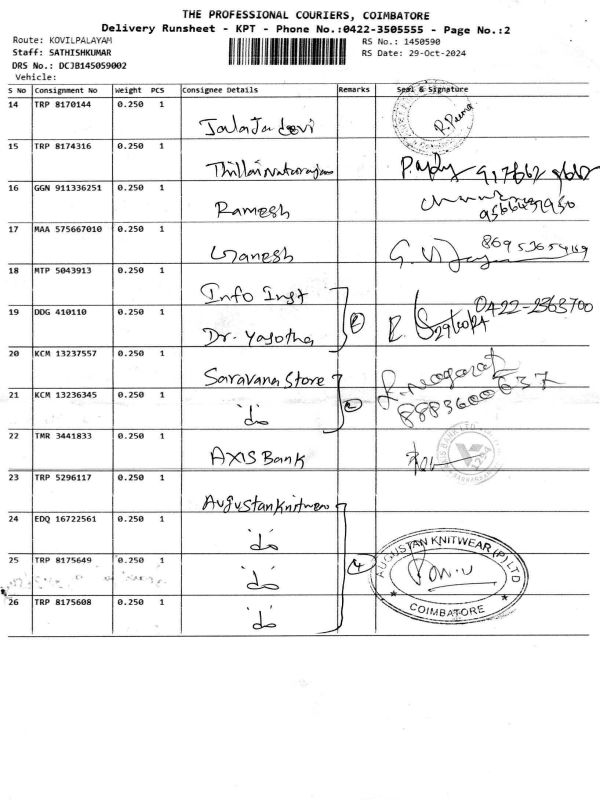 THE PROFESSIONAL COURIERS, COIMBATORE
Delivery Runsheet - KPT - Phone No.:0422-3505555 - Page No.:2
Route: KOVILPALAYAM
RS No.: 1450590
Staff: SATHISHKUMAR
RS Date: 29-Oct-2024
DRS No.: DCJB145059002
Vehicle:
S No Consignment No Weight PCS Consignee Details Remarks Seal & Signature
14 TRP 8170144 0.250 1 Jalaja devi
15 TRP 8174316 0.250 1 Thillainatarajan
16 GGN 911336251 0.250 1 Ramesh
17 MAA 575667010 0.250 1 Ganesh
18 MTP 5043913 0.250 1 Info Inst
19 DDG 410110 0.250 1 Dr. Yasotha 2 0422-2363700
29/10/24
20 KCM 13237557 0.250 1 Saravana Store
21 KCM 13236345 0.250 1 do 2 8883600637
22 TMR 3441833 0.250 1 AXIS Bank
23 TRP 5296117 0.250 1 Augustan Knitwear
24 EDQ 16722561 0.250 1 do
25 TRP 8175649 0.250 1 do 4 AUGUSTAN KNITWEAR (P) LTD
26 TRP 8175608 0.250 1 do COIMBATORE